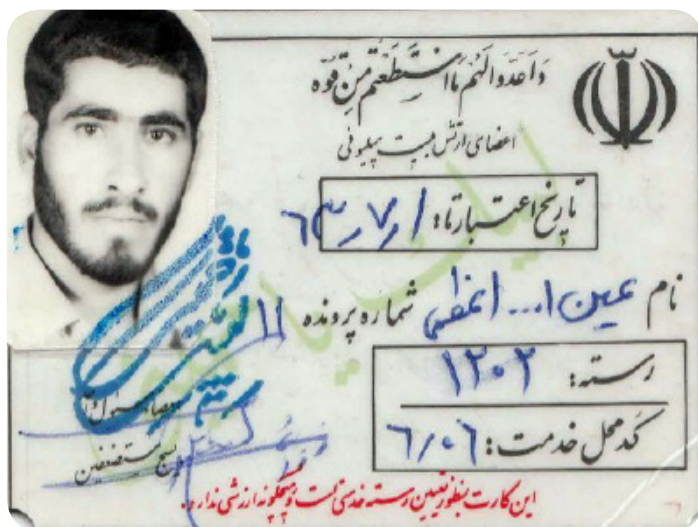 وَاَعِدّوا لَهُم مَا اسْتَطَعْتُم مِنْ قُوَّه
اعضای ارتش بیست میلیونی
تاریخ اعتبار تا: ۶۳/۷/۱
نام عین ا... اعظمی شماره پرونده ۱۱
رسته: ۱۲۰۲
کد محل خدمت: ۶/۰۶
بسیج مستضعفین
این کارت بمنظور تعیین رسته خدمتی است و هیچگونه ارزشی ندارد.